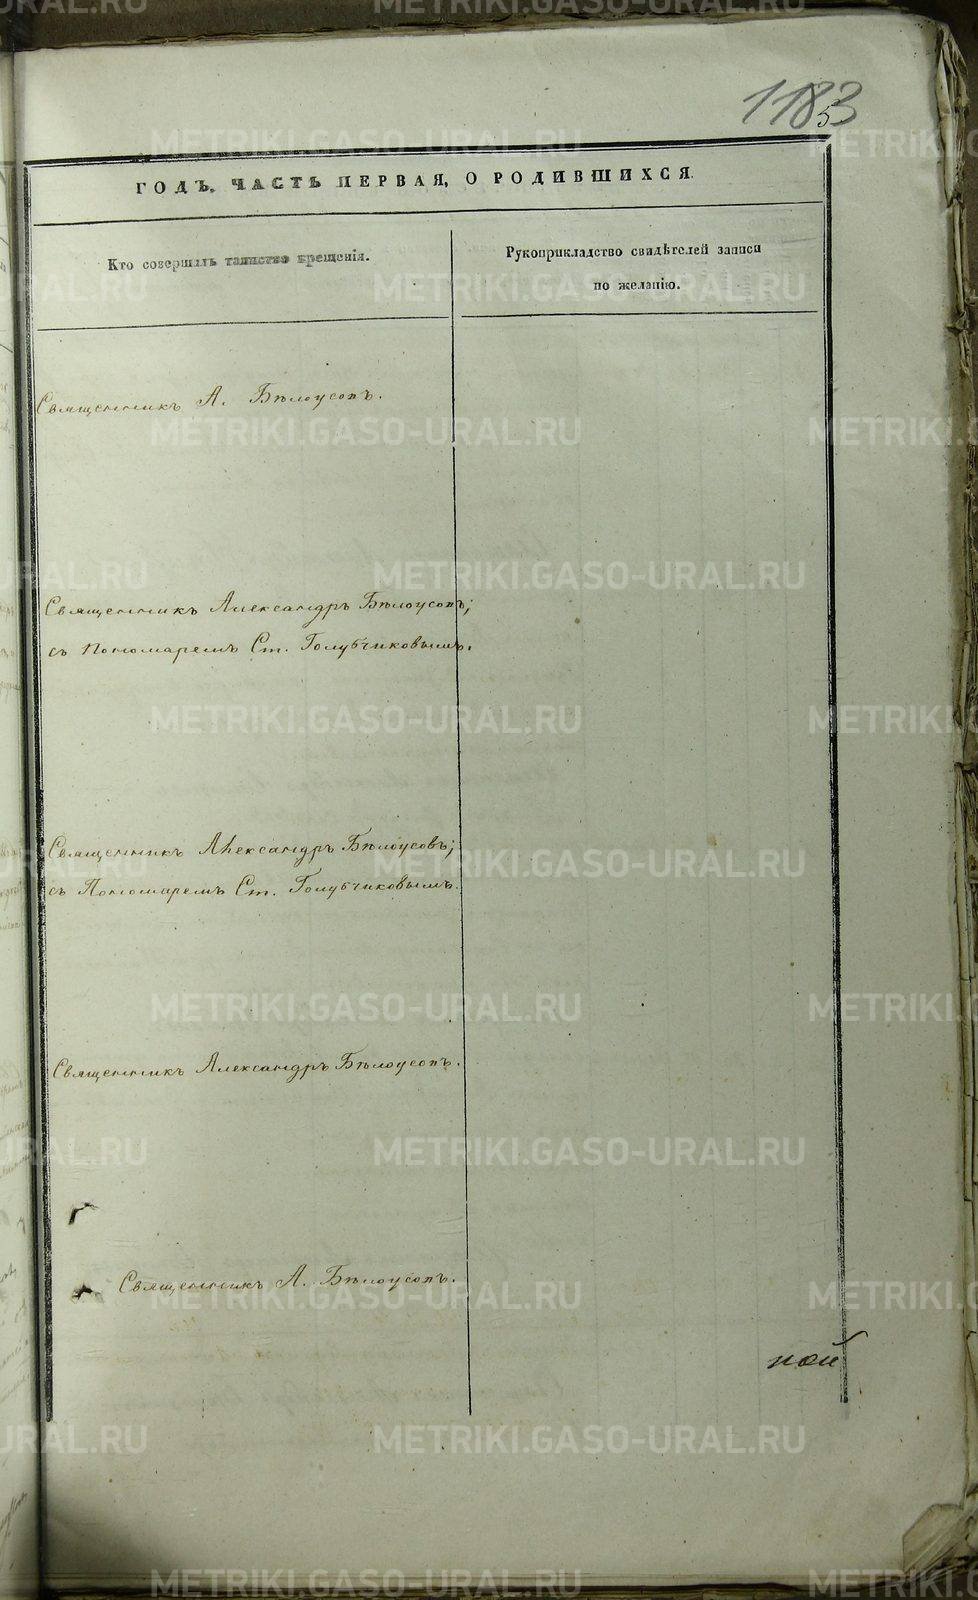 1183
5
ГОДЪ. ЧАСТЬ ПЕРВАЯ, О РОДИВШИХСЯ.
Кто совершалъ таинство крещенія.
Рукоприкладство свидѣтелей записи
по желанію.
Священникъ А. Бѣлоусовъ.
Священникъ Александръ Бѣлоусовъ;
съ Пономаремъ Ст. Голубчиковымъ.
Священникъ Александръ Бѣлоусовъ;
съ Пономаремъ Ст. Голубчиковымъ.
Священникъ Александръ Бѣлоусовъ.
Священникъ А. Бѣлоусовъ.
ной
METRIKI.GASO-URAL.RU